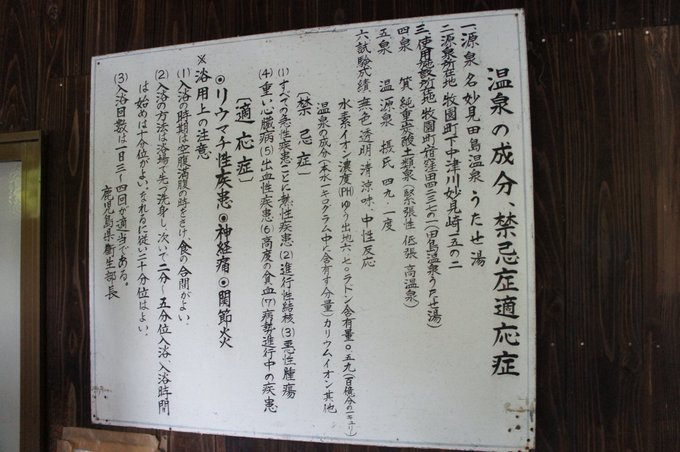 温泉の成分、禁忌症適応症
一.源泉名 妙見田島温泉 うたせ湯
二.源泉所在地 牧園町下中津川妙見崎一五の二
三.使用施設所在地 牧園町宿窪田四二三七の一(田島温泉うたせ湯)
四泉 質 純重炭酸土類泉(緊張性 低張 高温泉)
五泉 温 源泉 摂氏 四九.一度
六試験成績 無色透明 清涼味、中性反応
水素イオン濃度(PH)ゆう出地六・七。ラドン含有量〇.五九(百億分の一キュリ)
温泉の成分(本水一キログラム中に含有す分量)カリウムイオン其他
〔禁忌症〕
(1)すべての急性疾患ことに熱性疾患(2)進行性結核(3)悪性腫瘍
(4)重い心臓病(5)出血性疾患(6)高度の貧血(7)病勢進行中の疾患
〔適応症〕
◉リウマチ性疾患◉神経痛◉関節炎
※浴用上の注意
(1)入浴の時期は空腹満腹の時をさけ食の合間がよい。
(2)入浴の方法は浴場で先づ洗身し次いで二分〜五分位入浴、入浴時間
は始めは十分位がよい、なれるに従い二十分位はよい、
(3)入浴回数は一日三〜四回が適当である。
鹿児島県衛生部長